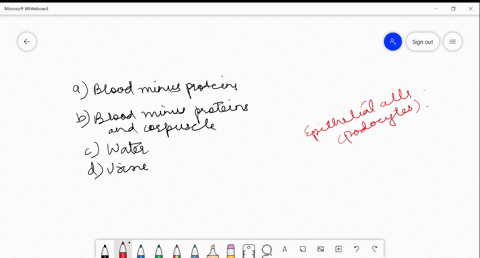 Microsoft Whiteboard
Sign out
a) Blood minus proteins
b) Blood minus proteins
and corpuscle
c) Water
d) Urine
Epithelial cells
(Podocytes).